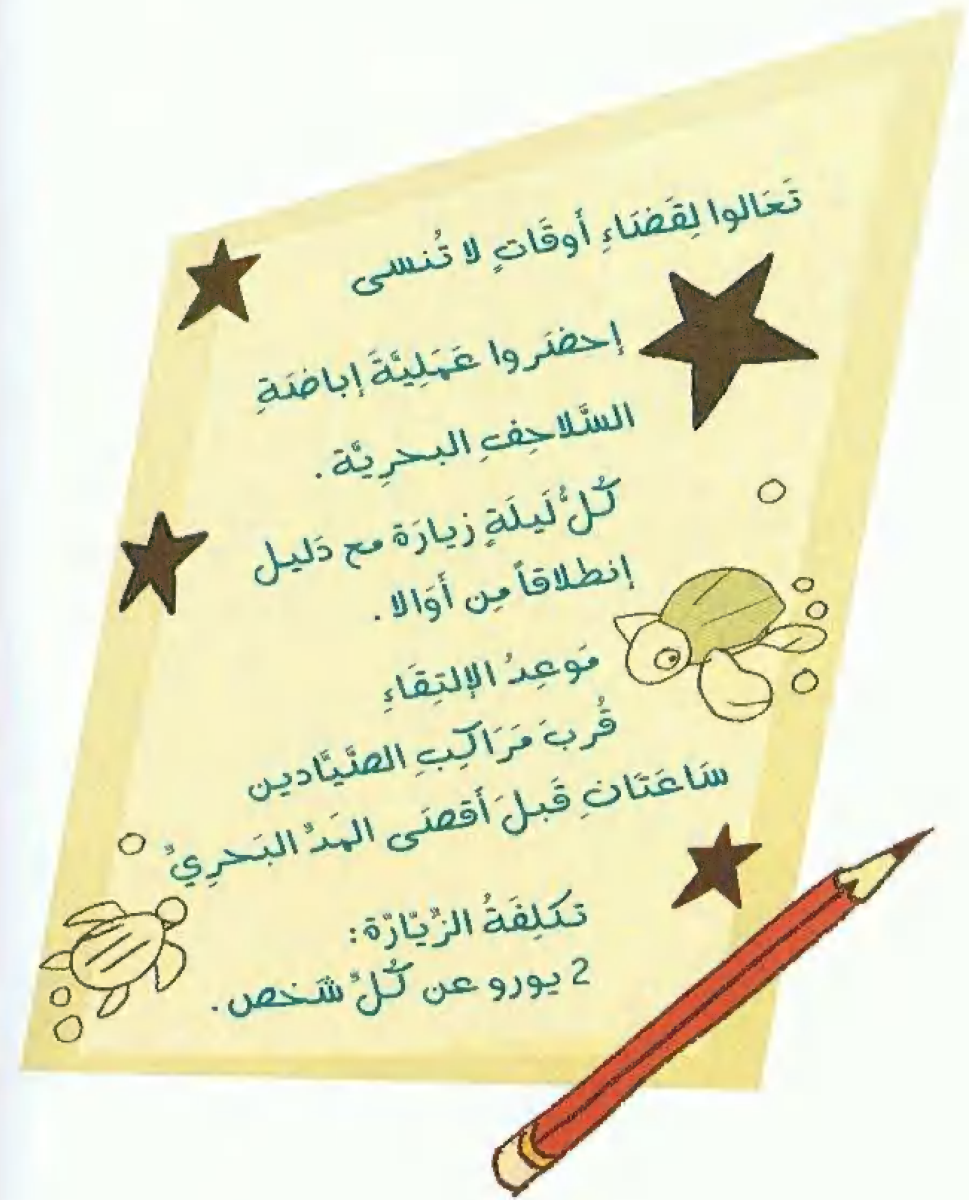 تَعَالوا لِقَضَاءِ أَوقَاتٍ لا تُنسى
إحضَروا عَمَلِيَّةَ إباضَةِ
السَّلاحِفِ البحرِيَّة.
كُلُّ لَيلَةٍ زيارَة مع دَليل
إنطلاقاً مِن أَوَالا.
مَوعِدُ الإلتِقَاءِ
قُربَ مَرَاكِبِ الصَّيَّادين
سَاعَتَانِ قَبلَ أَقصَى المَدِّ البَحرِيِّ
تكلِفَةُ الزِّيّارَة:
2 يورو عن كُلِّ شَخص.